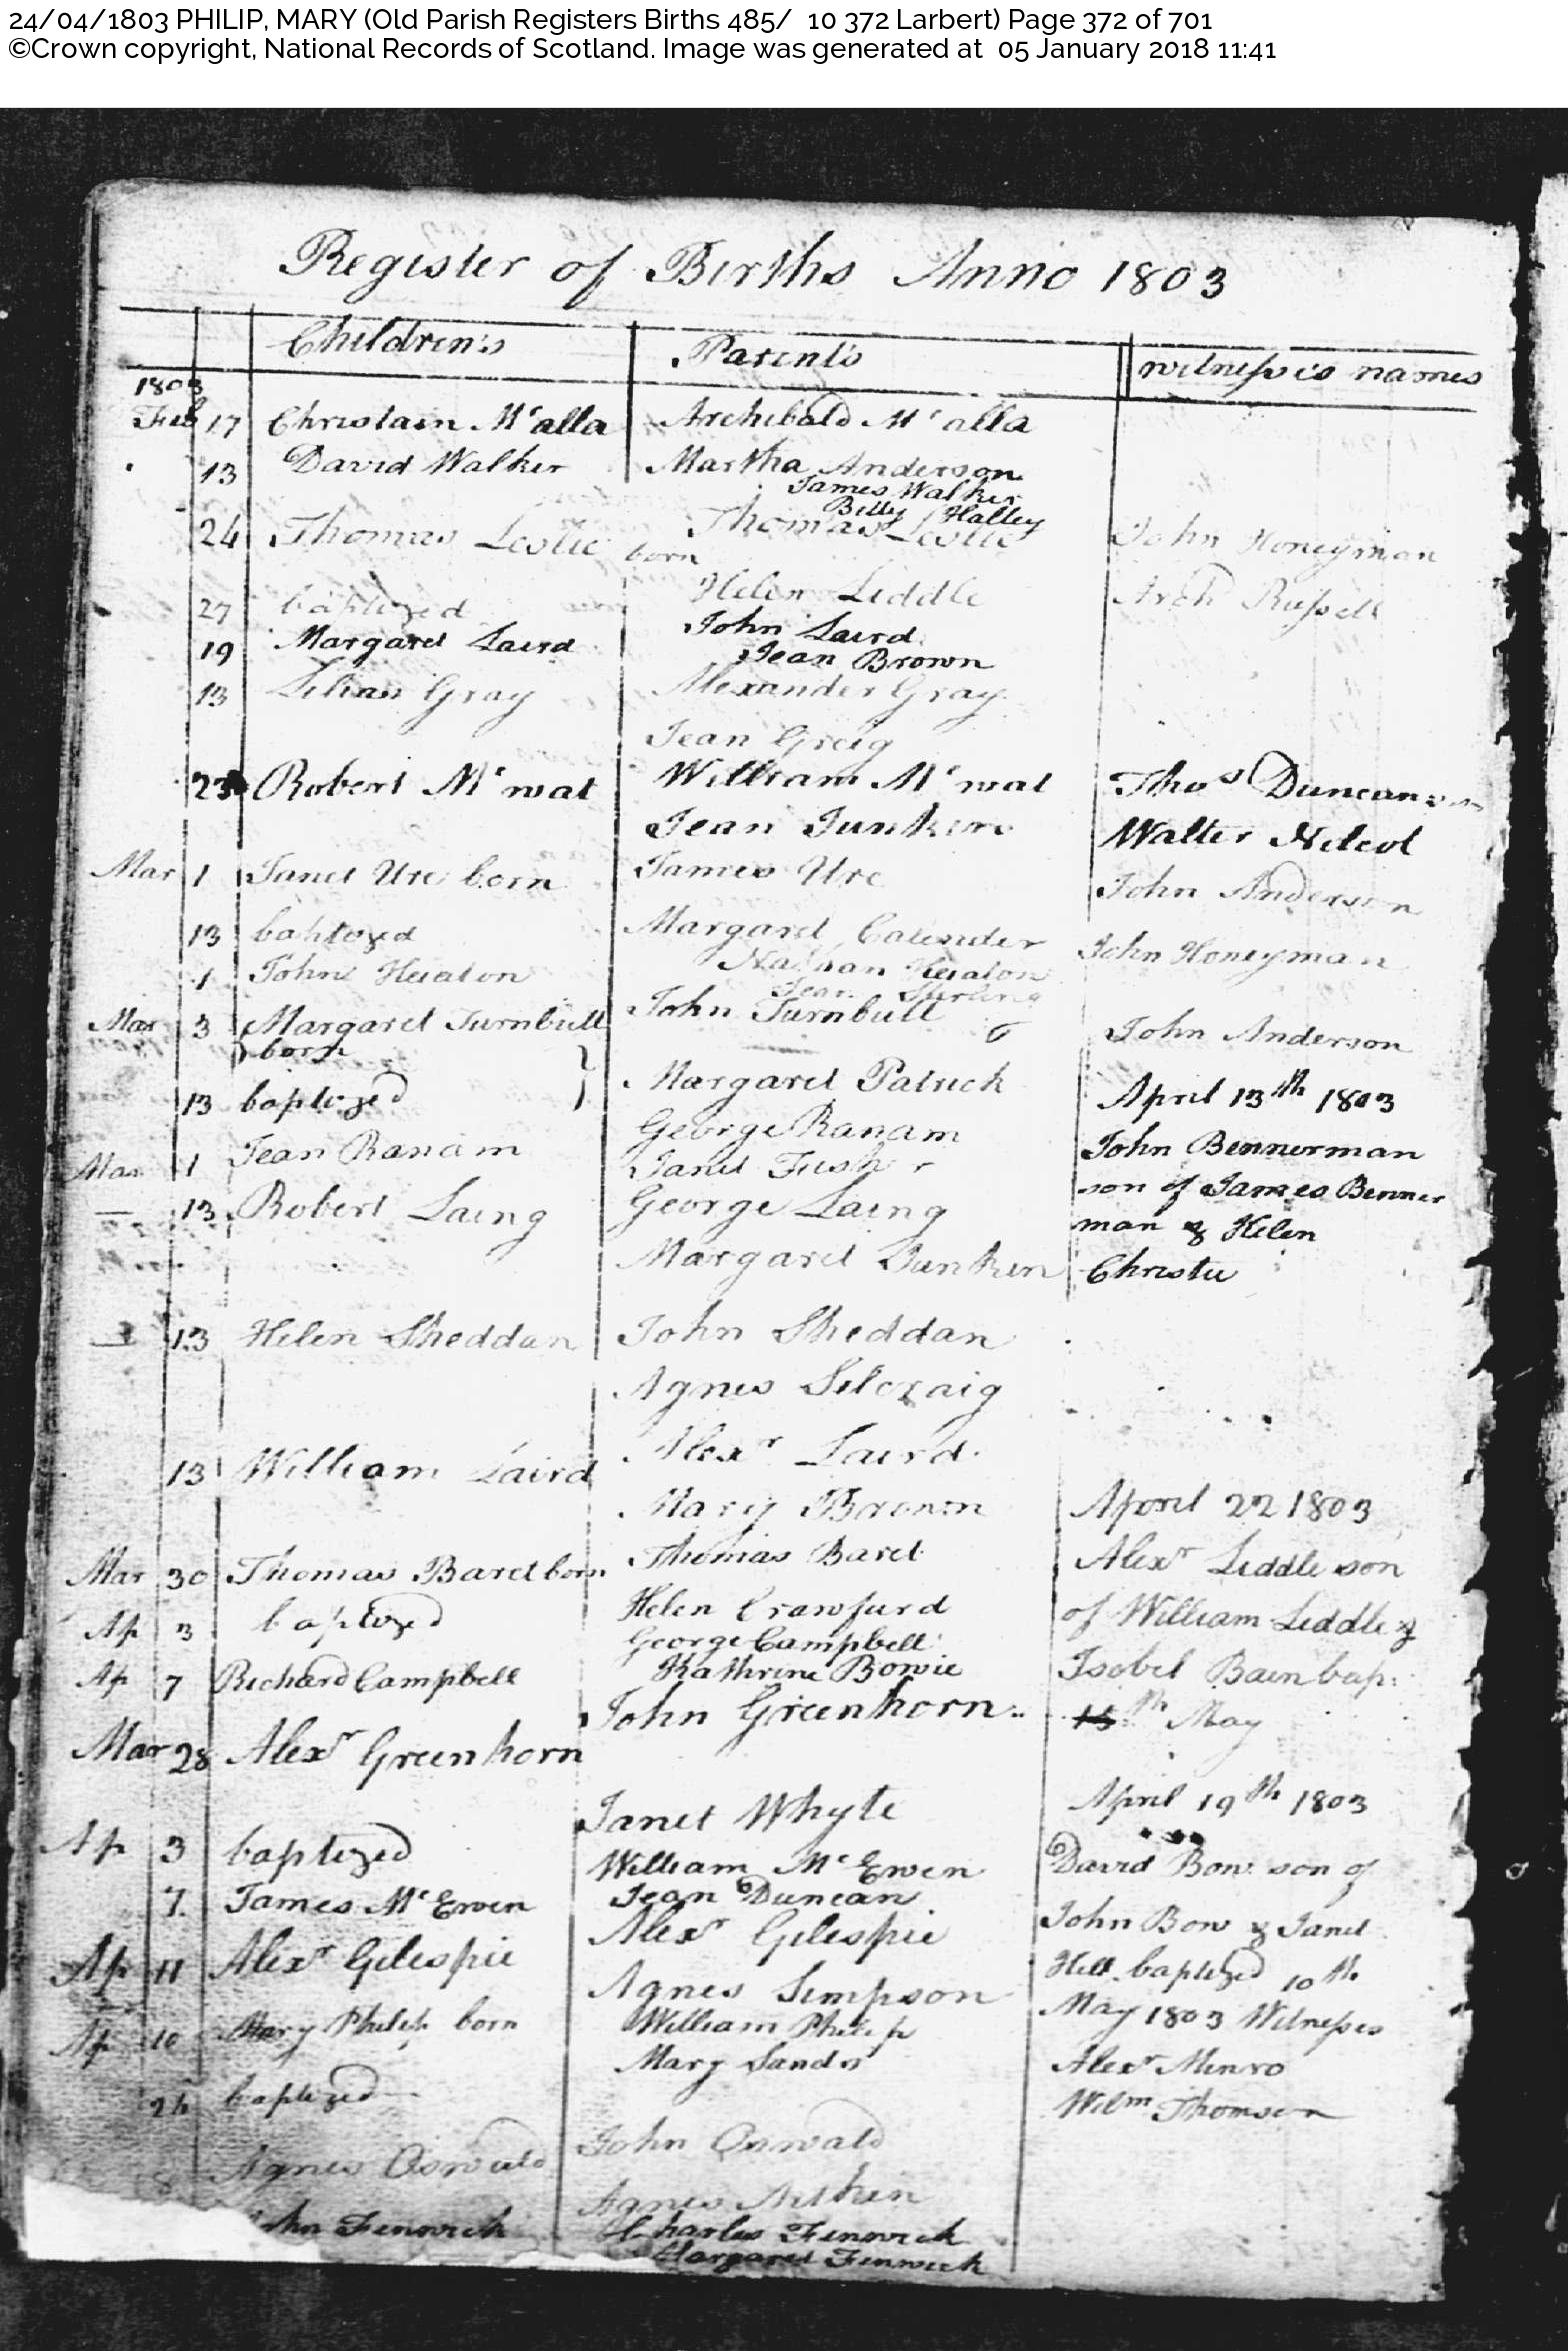 24/04/1803 PHILIP, MARY (Old Parish Registers Births 485/ 10 372 Larbert) Page 372 of 701
©Crown copyright, National Records of Scotland. Image was generated at 05 January 2018 11:41
Register of Births Anno 1803
Children's Parents witnesses names
1803
Feb 17 Christain Mcalla Archibald Mcalla
13 David Walker Martha Anderson
James Walker
Betty Halley
24 Thomas Leslie born Thomas Leslie John Honeyman
27 baptized Helen Liddle Arch Russell
19 Margaret Laird John Laird
Jean Brown
13 Lilian Gray Alexander Gray
Jean Greig
23 Robert Mcwat William Mcwat Thos Duncanson
Jean Junkin Walter Nelcol
Mar 1 Janet Ure born James Ure John Anderson
13 baptized Margaret Calender John Honeyman
1 John Heuaton Nathan Heuaton
Jean Sterling
Mar 3 Margaret Turnbull John Turnbull John Anderson
born
13 baptized Margaret Patrick April 13th 1803
Mar 1 Jean Ranam George Ranam John Bennerman
Janet Fisher son of James Benner
13 Robert Laing George Laing man & Helen
Margaret Dunken Christie
13 Helen Sheddan John Sheddan
Agnes Silcraig
13 William Laird Alexr Laird
Mary Brown April 22 1803
Mar 30 Thomas Baret born Thomas Baret Alexr Liddle son
Ap 3 baptized Helen Crawfurd of William Liddle &
George Campbell
Ap 7 Richard Campbell Kathrine Bowie Isobel Bain bap:
Mar 28 Alexr Greenhorn John Greenhorn 15th May
Janet Whyte April 19th 1803
Ap 3 baptized William McEwen David Bow son of
7 James McEwen Jean Duncan John Bow & Janet
Ap 11 Alexr Gilespie Alexr Gilespie Hill baptized 10th
Agnes Simpson May 1803 Witnesses
Ap 10 Mary Philip born William Philip Alexr Menro
Mary Sands Wilm Thomson
24 baptized
8 Agnes Oswald John Oswald
Agnes Aitken
John Fenwick Charles Fenwick
Margaret Fenwick